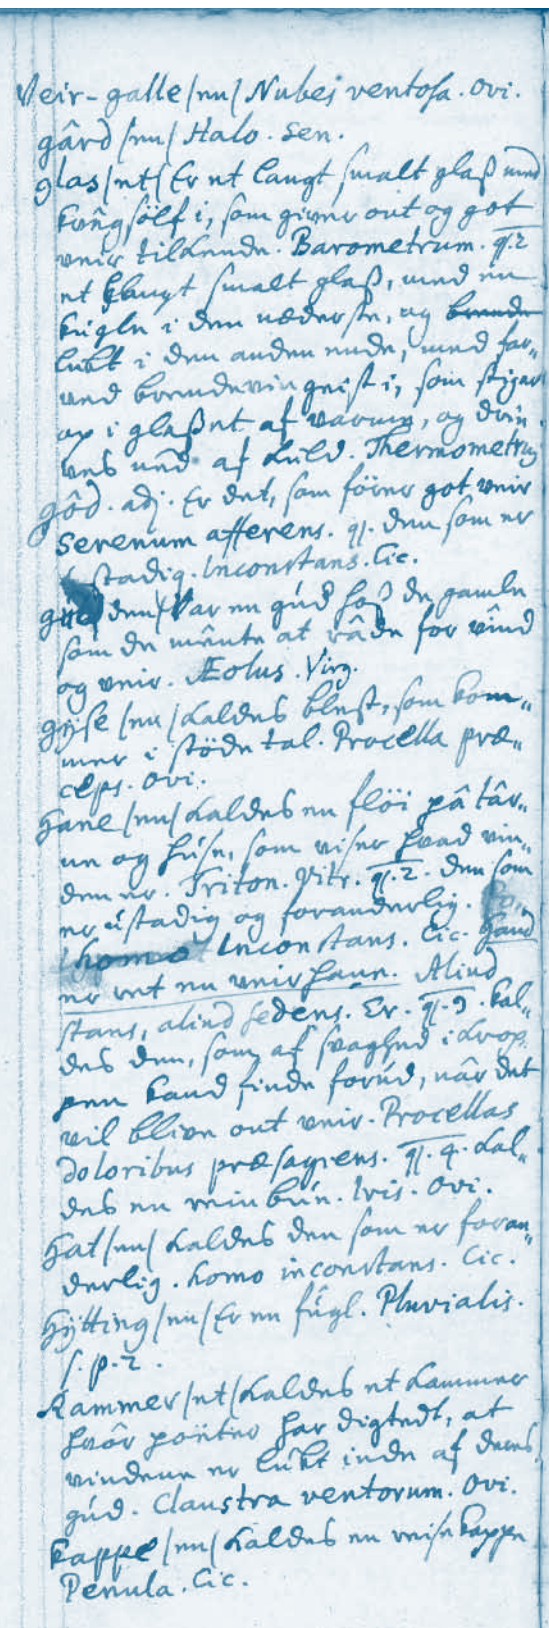 Veir-galle /en/ Nubes ventosa. Ovi.
gård /en/ Halo. Sen.
glas /et/ Er et langt smalt glaß med
kvêgsölf i, som giver ont og got
veir tilkende. Barometrum. ql. 2
et langt smalt glaß, med en
kugle i den nederste, og
lukt i den anden ende, med far„
ved brendevin geist i, som stiger
op i glaßet af varme, og driv„
ves ned af kuld. Thermometrum
gôd. adj. Er det, som förer got veir
Serenum afferens. ql. den som er
ustadig. Inconstans. Cic.
gud den/ Var en gúd hoß de gamle
som de mênte at râde for vînd
og veir. Æolus. Virg.
gyse /en/ kaldes blest, som kom„
mer i stöde tal. Procella præ„
ceps. Ovi.
Hane /en/ kaldes en flöi på târ„
ne og húse, som viser hvad vin„
den er. Triton. Vitr. ql. 2. den som
er ústadig og foranderlig.
homo Inconstans. Cic. Hand
er ret en veirhane. Aliud
stans, aliud sedens. Er. ql. 3. kal„
des den, som af svaghed i krop„
pen kand finde forúd, når det
vil blive ont veir. Procellas
doloribus præsagiens. ql. 4. kal„
des en veinbún. Iris. Ovi.
Hat /en/ kaldes den som er foran„
derlig. homo inconstans. Cic.
Hÿtting /en/ Er en fúgl. Pluvialis.
s. p. 2.
Kammer /et/ kaldes et kammer
hvôr poëter har digtedt, at
vindene er lúkt inde af deres
gúd. Claustra ventorum. Ovi.
kappe /en/ kaldes en reise kappe
Penula. Cic.